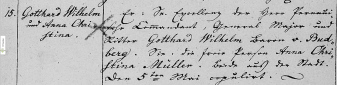 15. Gotthard Wilhelm
und Anna Chri-
stina.
Er: Se. Excellenz der Herr
Commendant, General Major und
Ritter Gotthard Wilhelm Baron v. Bud-
berg. Sie: die freie Person Anna Chri-
stina Müller. Beide aus der Stadt.
Den 5ten Mai copulirt.